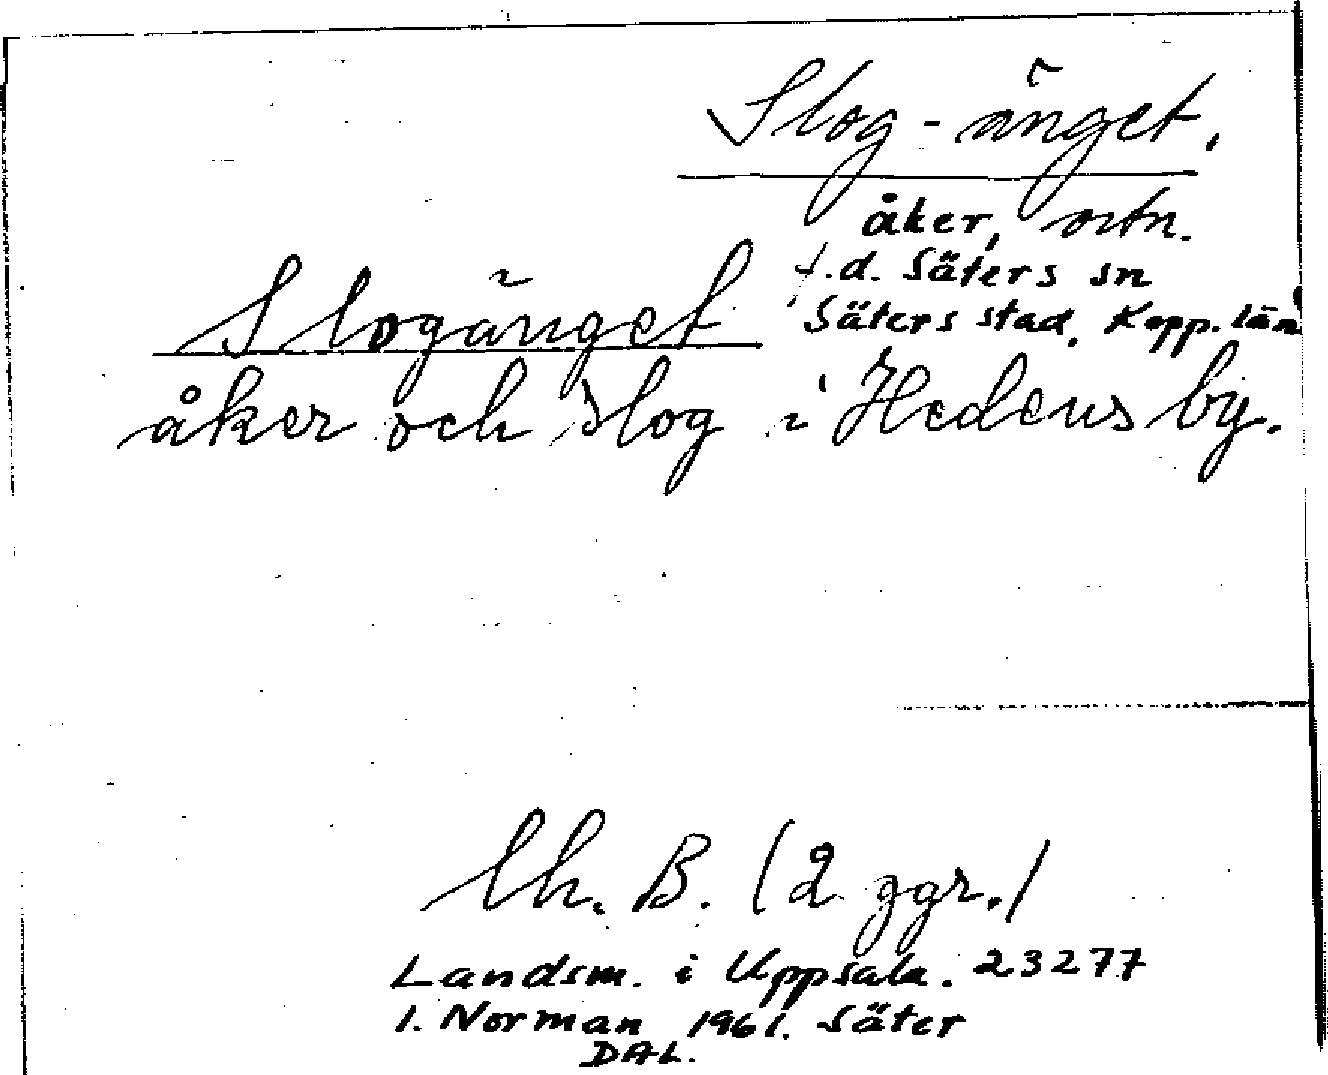 Slog-änget.
åker, ortn.
f.d. Säters sn
Säters stad, Kopp. län
Slogänget
åker och slog i Hedens by.
Ch. B. (2 ggr.)
Landsm. i Uppsala. 23277
I. Norman 1961. Säter
DAL.